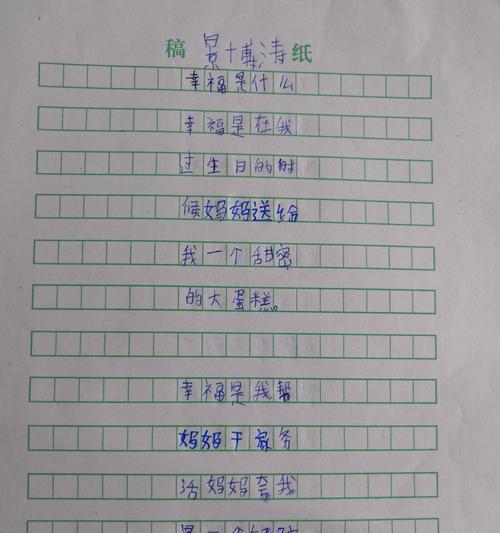 稿 景博涛 纸
幸福是什么
幸福是在我
过生日的时
候妈妈送给
我一个甜密
的大蛋糕。
幸福是我帮
妈妈干家务
活妈妈夸我
是一个好孩